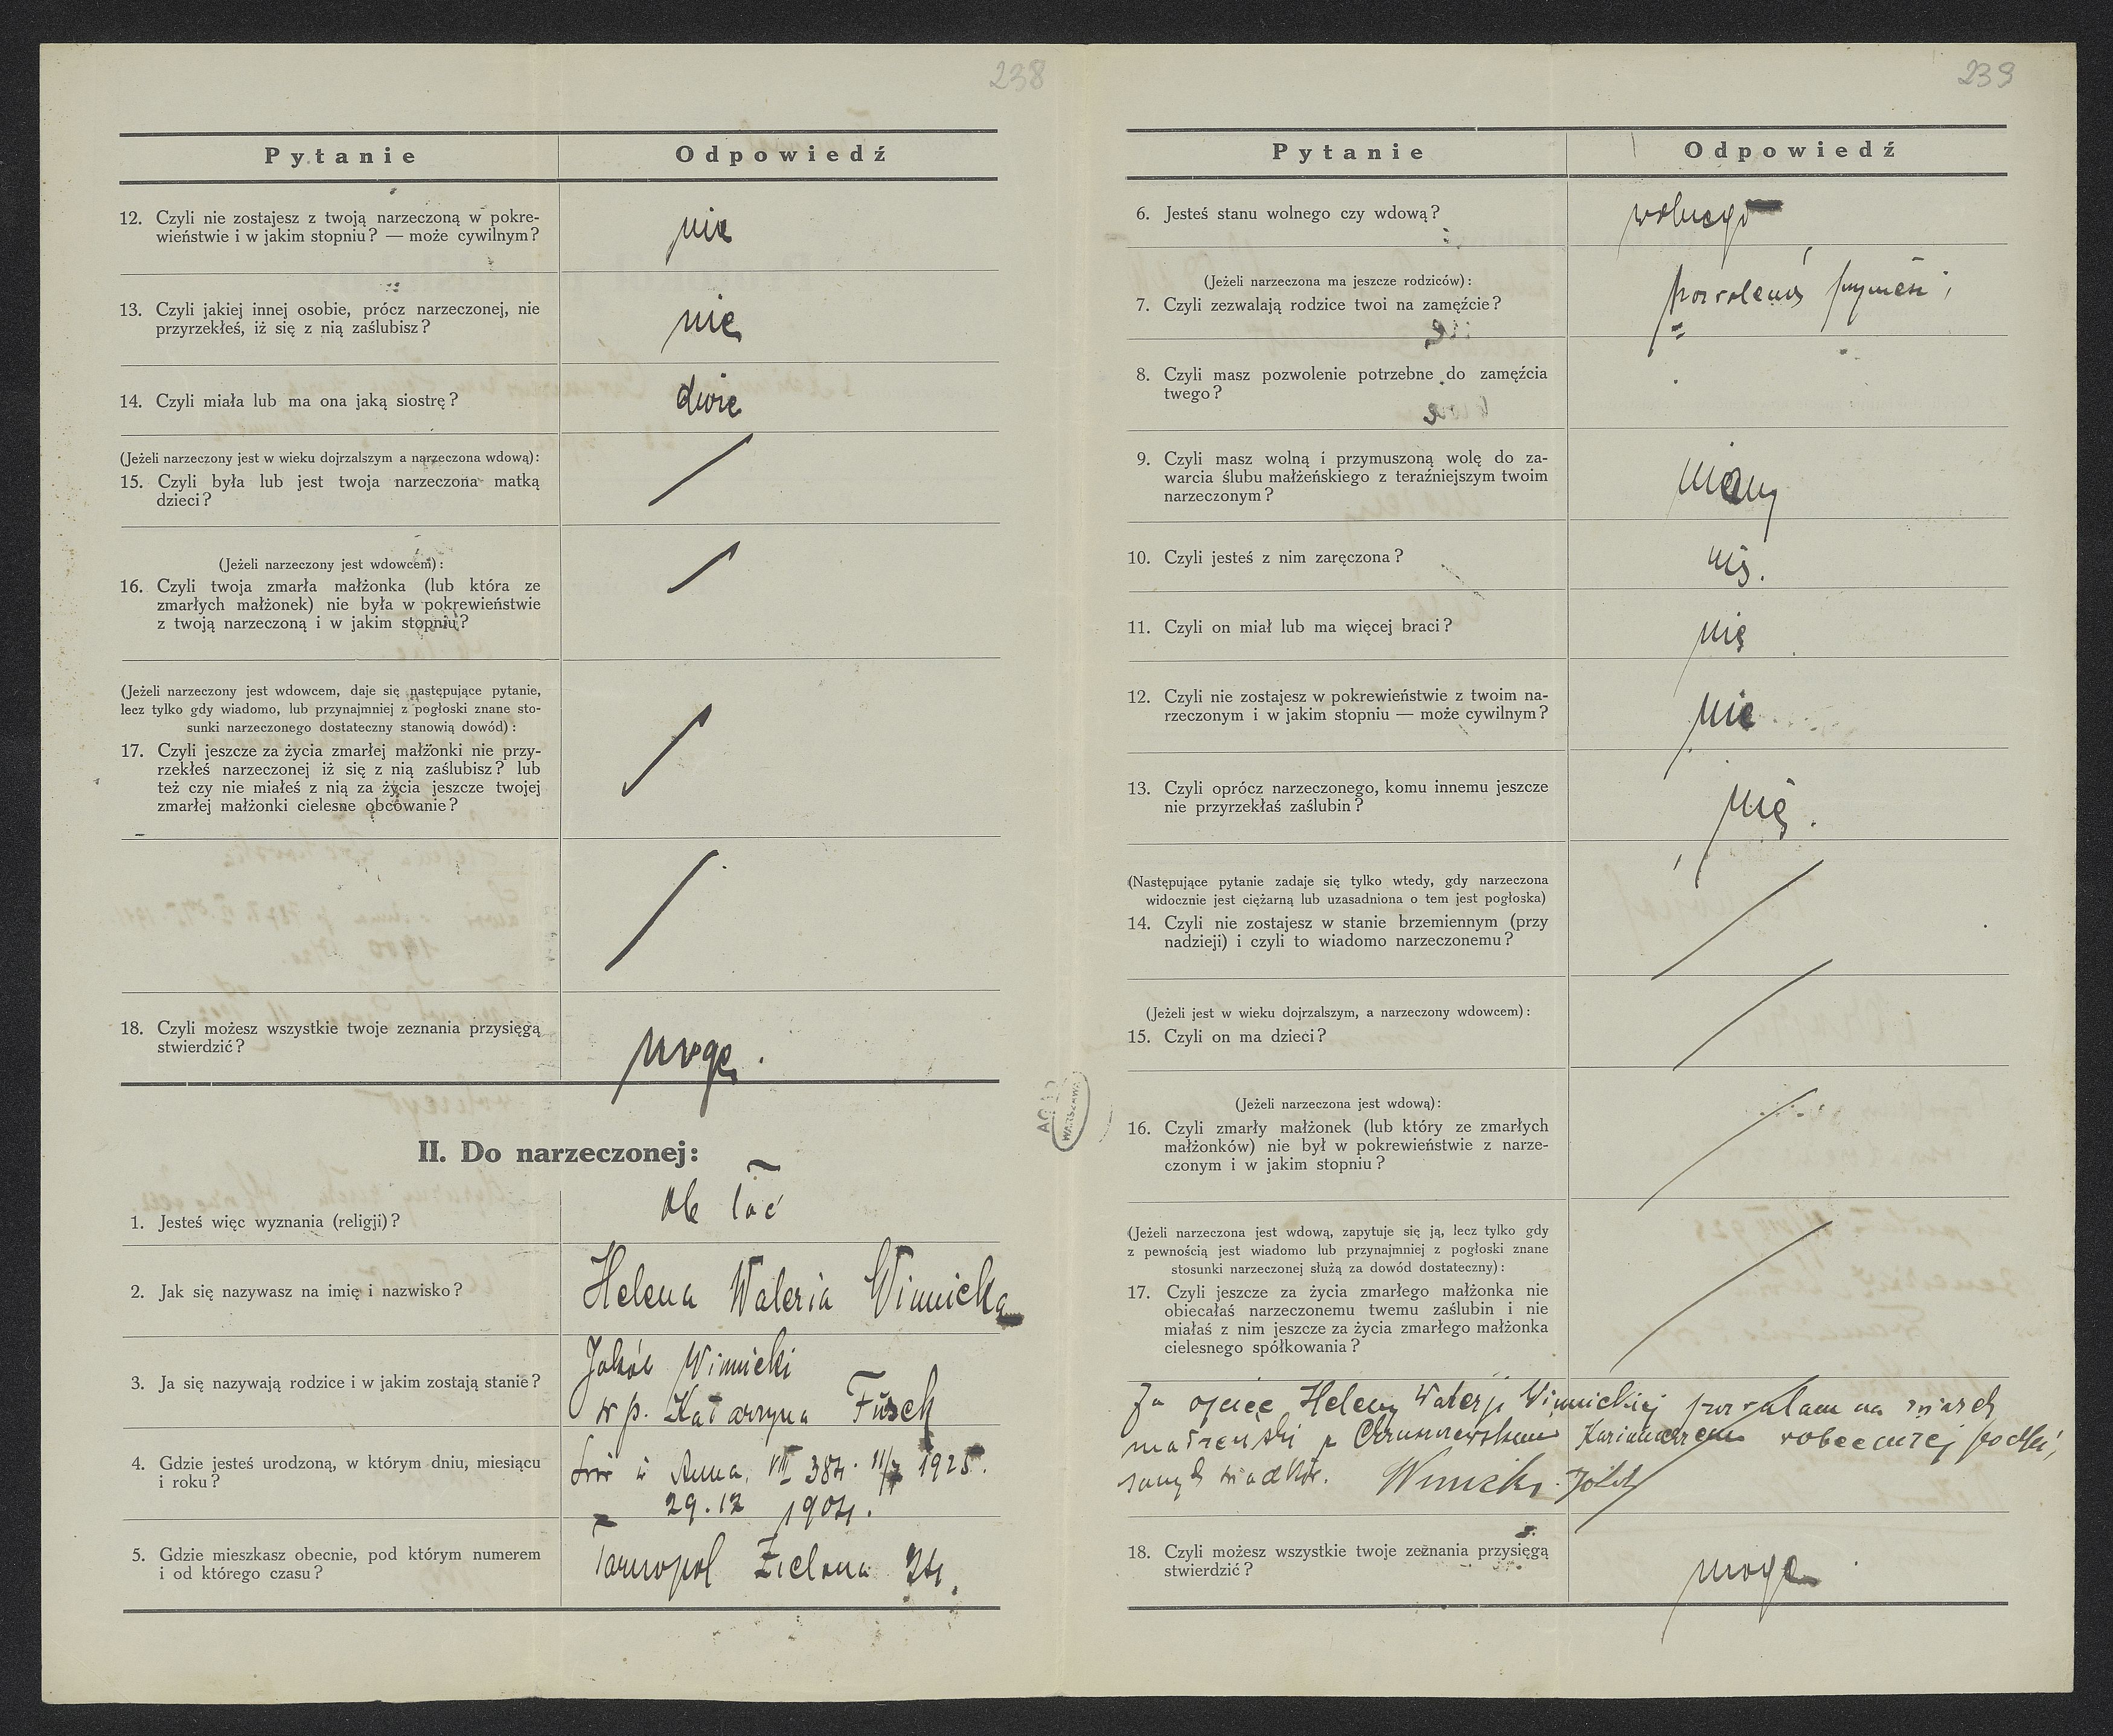 238
Pytanie Odpowiedź
12. Czyli nie zostajesz z twoją narzeczoną w pokre-
wieństwie i w jakim stopniu? — może cywilnym?
nie
13. Czyli jakiej innej osobie, prócz narzeczonej, nie
przyrzekłeś, iż się z nią zaślubisz?
nie
14. Czyli miała lub ma ona jaką siostrę?
dwie
(Jeżeli narzeczony jest w wieku dojrzalszym a narzeczona wdową):
15. Czyli była lub jest twoja narzeczona matką
dzieci?
(Jeżeli narzeczony jest wdowcem):
16. Czyli twoja zmarła małżonka (lub która ze
zmarłych małżonek) nie była w pokrewieństwie
z twoją narzeczoną i w jakim stopniu?
(Jeżeli narzeczony jest wdowcem, daje się następujące pytanie,
lecz tylko gdy wiadomo, lub przynajmniej z pogłoski znane sto-
sunki narzeczonego dostateczny stanowią dowód):
17. Czyli jeszcze za życia zmarłej małżonki nie przy-
rzekłeś narzeczonej iż się z nią zaślubisz? lub
też czy nie miałeś z nią za życia jeszcze twojej
zmarłej małżonki cielesne obcowanie?
18. Czyli możesz wszystkie twoje zeznania przysięgą
stwierdzić?
mogę.
II. Do narzeczonej:
1. Jesteś więc wyznania (religji)?
łać
2. Jak się nazywasz na imię i nazwisko?
Helena Waleria Winnicka
3. Ja się nazywają rodzice i w jakim zostają stanie?
Jakób Winnicki
w p. Katarzyna Fusek
4. Gdzie jesteś urodzoną, w którym dniu, miesiącu
i roku?
Anna, VIII 384. 1925.
29.12 1904.
5. Gdzie mieszkasz obecnie, pod którym numerem
i od którego czasu?
Tarnopol Zielona
239
Pytanie Odpowiedź
6. Jesteś stanu wolnego czy wdową?
wolnego
(Jeżeli narzeczona ma jeszcze rodziców):
7. Czyli zezwalają rodzice twoi na zamęźcie?
8. Czyli masz pozwolenie potrzebne do zamęźcia
twego?
9. Czyli masz wolną i przymuszoną wolę do za-
warcia ślubu małżeńskiego z teraźniejszym twoim
narzeczonym?
mam
10. Czyli jesteś z nim zaręczona?
nie.
11. Czyli on miał lub ma więcej braci?
nie
12. Czyli nie zostajesz w pokrewieństwie z twoim na-
rzeczonym i w jakim stopniu — może cywilnym?
nie
13. Czyli oprócz narzeczonego, komu innemu jeszcze
nie przyrzekłaś zaślubin?
nie.
(Następujące pytanie zadaje się tylko wtedy, gdy narzeczona
widocznie jest ciężarną lub uzasadniona o tem jest pogłoska)
14. Czyli nie zostajesz w stanie brzemiennym (przy
nadzieji) i czyli to wiadomo narzeczonemu?
(Jeżeli jest w wieku dojrzalszym, a narzeczony wdowcem):
15. Czyli on ma dzieci?
(Jeżeli narzeczona jest wdową):
16. Czyli zmarły małżonek (lub który ze zmarłych
małżonków) nie był w pokrewieństwie z narze-
czonym i w jakim stopniu?
(Jeżeli narzeczona jest wdową, zapytuje się ją, lecz tylko gdy
z pewnością jest wiadomo lub przynajmniej z pogłoski znane
stosunki narzeczonej służą za dowód dostateczny):
17. Czyli jeszcze za życia zmarłego małżonka nie
obiecałaś narzeczonemu twemu zaślubin i nie
miałaś z nim jeszcze za życia zmarłego małżonka
cielesnego spółkowania?
Heleny Walerji Winnickiej na
małżeński z Kazimierzem wobec podpi-
sanych świadków.
18. Czyli możesz wszystkie twoje zeznania przysięgą
stwierdzić?
mogę
WARSZAWA